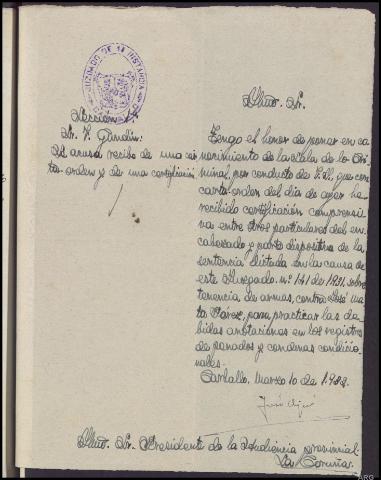 JUZGADO DE 1ª INSTANCIA
Iltmo. Sr.
Sección 1ª
Sr. V. Gundín:
Se acusa recibo de una car
ta-orden y de una certificación
Tengo el honor de poner en co
nocimiento de la Sala de lo Cri
minal, por conducto de V.I., que con
carta-orden del día de ayer he
recibido certificación comprensi
va entre otros particulares del en
cabezado y parte dispositiva de la
sentencia dictada en la causa de
este Juzgado nº 141 de 1931, sobre
tenencia de armas, contra José
Pérez, para practicar las de
bidas anotaciones en los registros
de penados y condenas condicio
nales.
Carballo, Marzo 10 de 1933.
Iltmo. Sr. Presidente de la Audiencia provincial.
La Coruña.
ARG